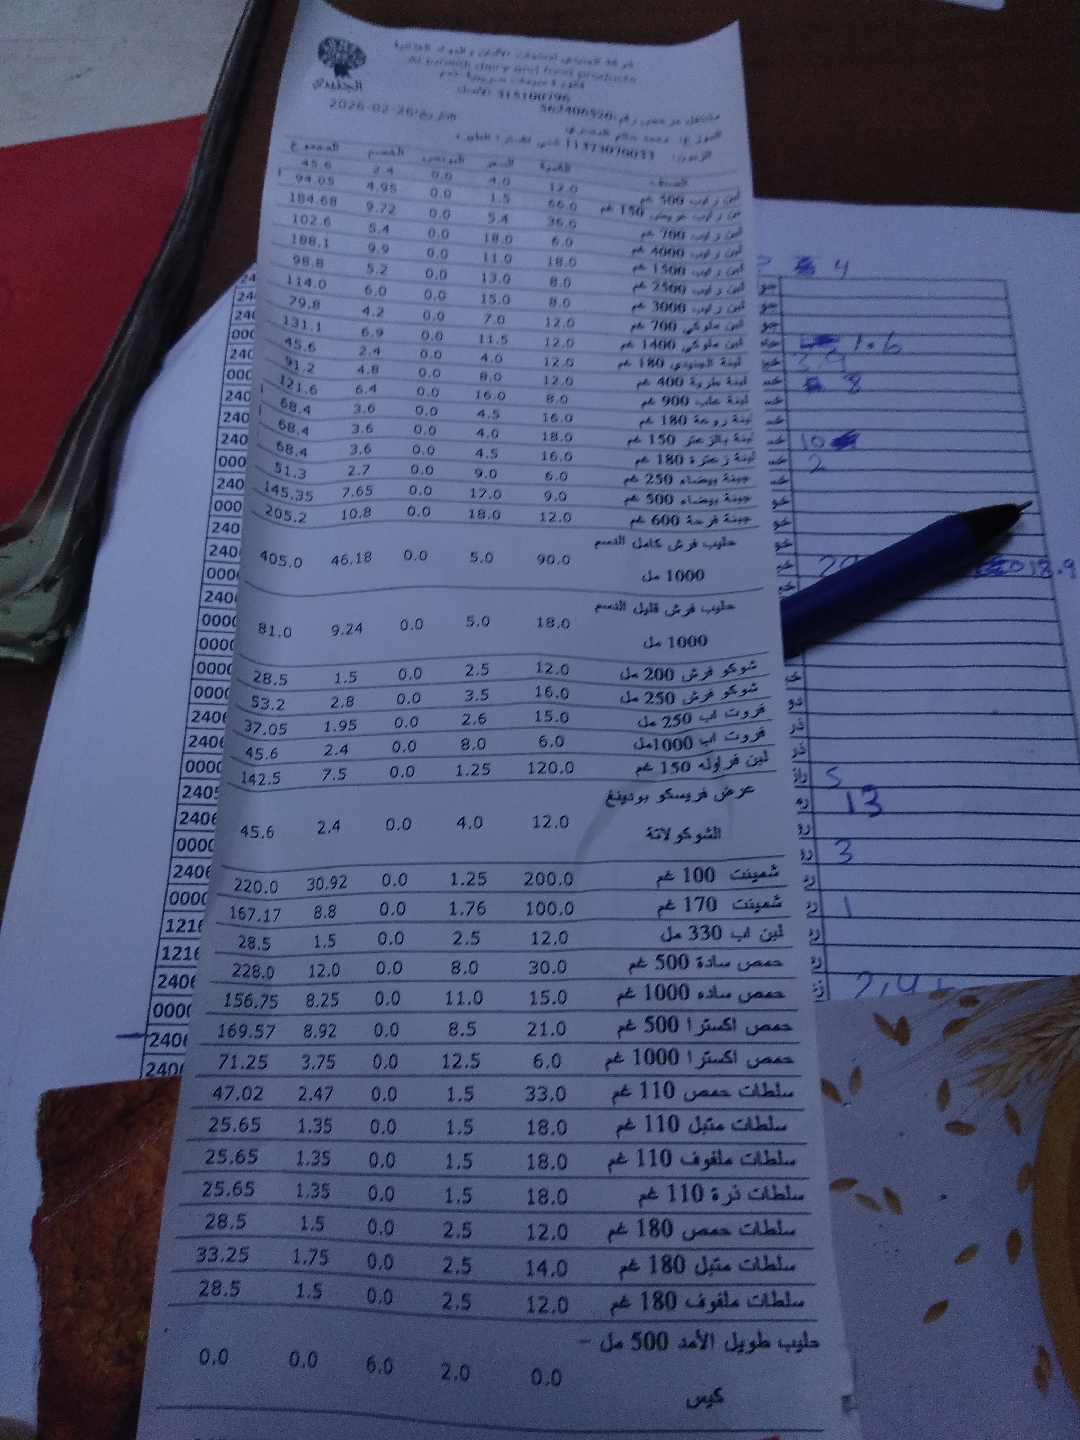 شركة الجنيدي لمنتجات الألبان والمواد الغذائية
Al Juneidi dairy and food products
الجنيدي
مشتغل مرخص رقم:562406520
التاريخ:2026-02-26
الصنف الكمية السعر البونص الخصم المجموع
لبن رايب 500 غم 12.0 4.0 0.0 2.4 45.6
150 غم 66.0 1.5 0.0 4.95 94.05
لبن رايب 700 غم 36.0 5.4 0.0 9.72 184.68
لبن رايب 4000 غم 6.0 18.0 0.0 5.4 102.6
لبن رايب 1500 غم 18.0 11.0 0.0 9.9 188.1
لبن رايب 2500 غم 8.0 13.0 0.0 5.2 98.8
لبن رايب 3000 غم 8.0 15.0 0.0 6.0 114.0
لبن ملوكي 700 غم 12.0 7.0 0.0 4.2 79.8
لبن ملوكي 1400 غم 12.0 11.5 0.0 6.9 131.1
لبنة الجنيدي 180 غم 12.0 4.0 0.0 2.4 45.6
لبنة طرية 400 غم 12.0 8.0 0.0 4.8 91.2
لبنة علب 900 غم 8.0 16.0 0.0 6.4 121.6
لبنة روعة 180 غم 16.0 4.5 0.0 3.6 68.4
لبنة بالزعتر 150 غم 18.0 4.0 0.0 3.6 68.4
لبنة زعترة 180 غم 16.0 4.5 0.0 3.6 68.4
جبنة بيضاء 250 غم 6.0 9.0 0.0 2.7 51.3
جبنة بيضاء 500 غم 9.0 17.0 0.0 7.65 145.35
جبنة فرحة 600 غم 12.0 18.0 0.0 10.8 205.2
حليب فرش كامل الدسم
1000 مل 90.0 5.0 0.0 46.18 405.0
حليب فرش قليل الدسم
1000 مل 18.0 5.0 0.0 9.24 81.0
شوكو فرش 200 مل 12.0 2.5 0.0 1.5 28.5
شوكو فرش 250 مل 16.0 3.5 0.0 2.8 53.2
فروت اب 250 مل 15.0 2.6 0.0 1.95 37.05
فروت اب 1000مل 6.0 8.0 0.0 2.4 45.6
لبن فراوله 150 غم 120.0 1.25 0.0 7.5 142.5
عرض فريسكو بودينغ
الشوكولاتة 12.0 4.0 0.0 2.4 45.6
شمينت 100 غم 200.0 1.25 0.0 30.92 220.0
شمينت 170 غم 100.0 1.76 0.0 8.8 167.17
لبن اب 330 مل 12.0 2.5 0.0 1.5 28.5
حمص سادة 500 غم 30.0 8.0 0.0 12.0 228.0
حمص ساده 1000 غم 15.0 11.0 0.0 8.25 156.75
حمص اكسترا 500 غم 21.0 8.5 0.0 8.92 169.57
حمص اكسترا 1000 غم 6.0 12.5 0.0 3.75 71.25
سلطات حمص 110 غم 33.0 1.5 0.0 2.47 47.02
سلطات متبل 110 غم 18.0 1.5 0.0 1.35 25.65
سلطات ملفوف 110 غم 18.0 1.5 0.0 1.35 25.65
سلطات ذرة 110 غم 18.0 1.5 0.0 1.35 25.65
سلطات حمص 180 غم 12.0 2.5 0.0 1.5 28.5
سلطات متبل 180 غم 14.0 2.5 0.0 1.75 33.25
سلطات ملفوف 180 غم 12.0 2.5 0.0 1.5 28.5
حليب طويل الأمد 500 مل -
كيس 0.0 2.0 6.0 0.0 0.0
4
1.6
8
10
2
5
13
3
1